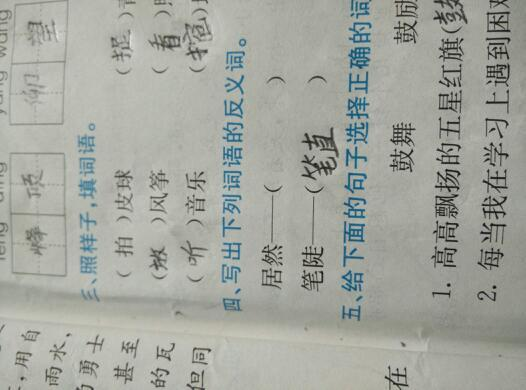 仰望
峰顶
三、照样子,填词语。
(拍)皮球
(放)风筝
(看)
(听)音乐
四、写出下列词语的反义词。
居然——( )
笔陡——(笔直)
五、给下面的句子选择正确的词
鼓舞 鼓励
1. 高高飘扬的五星红旗(
2. 每当我在学习上遇到困难
,用自
雨水,
勇士
甚至
的瓦
但同
在